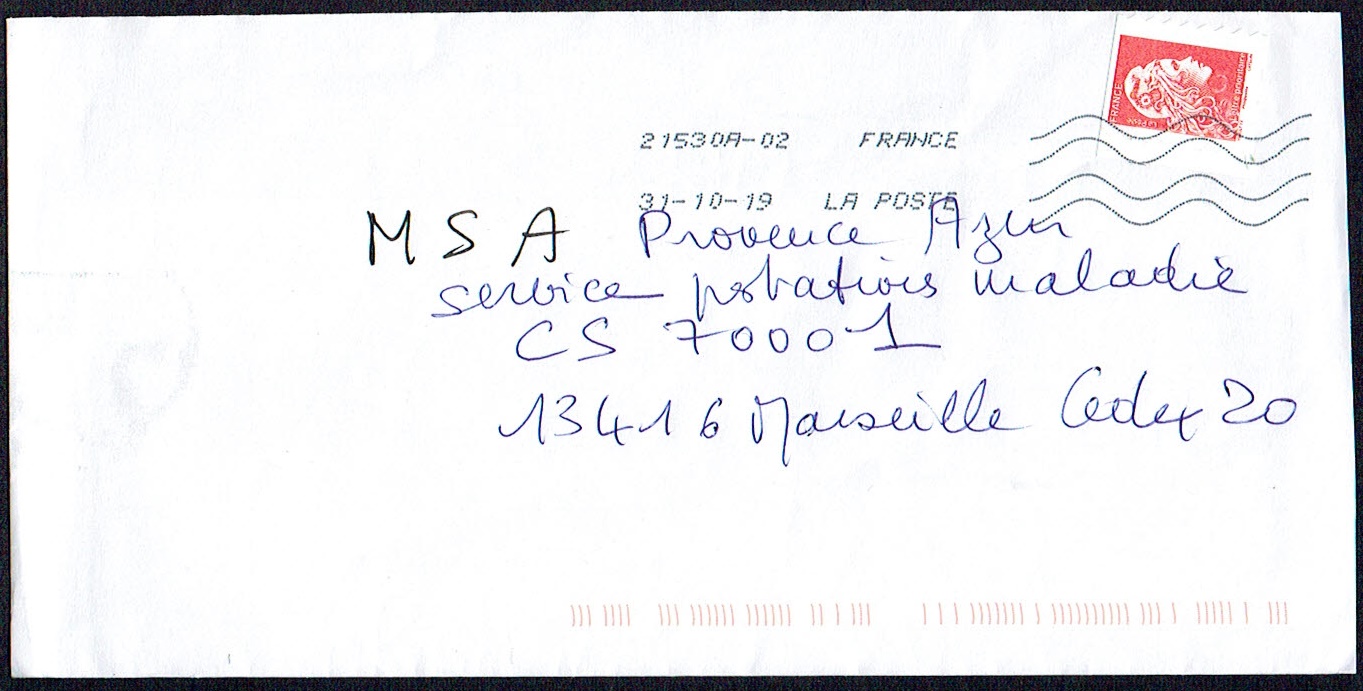 FRANCE
lettre prioritaire
21530A-02 FRANCE
31-10-19 LA POSTE
MSA Provence Azur
service prestations maladie
CS 70001
13416 Marseille Cedex 20